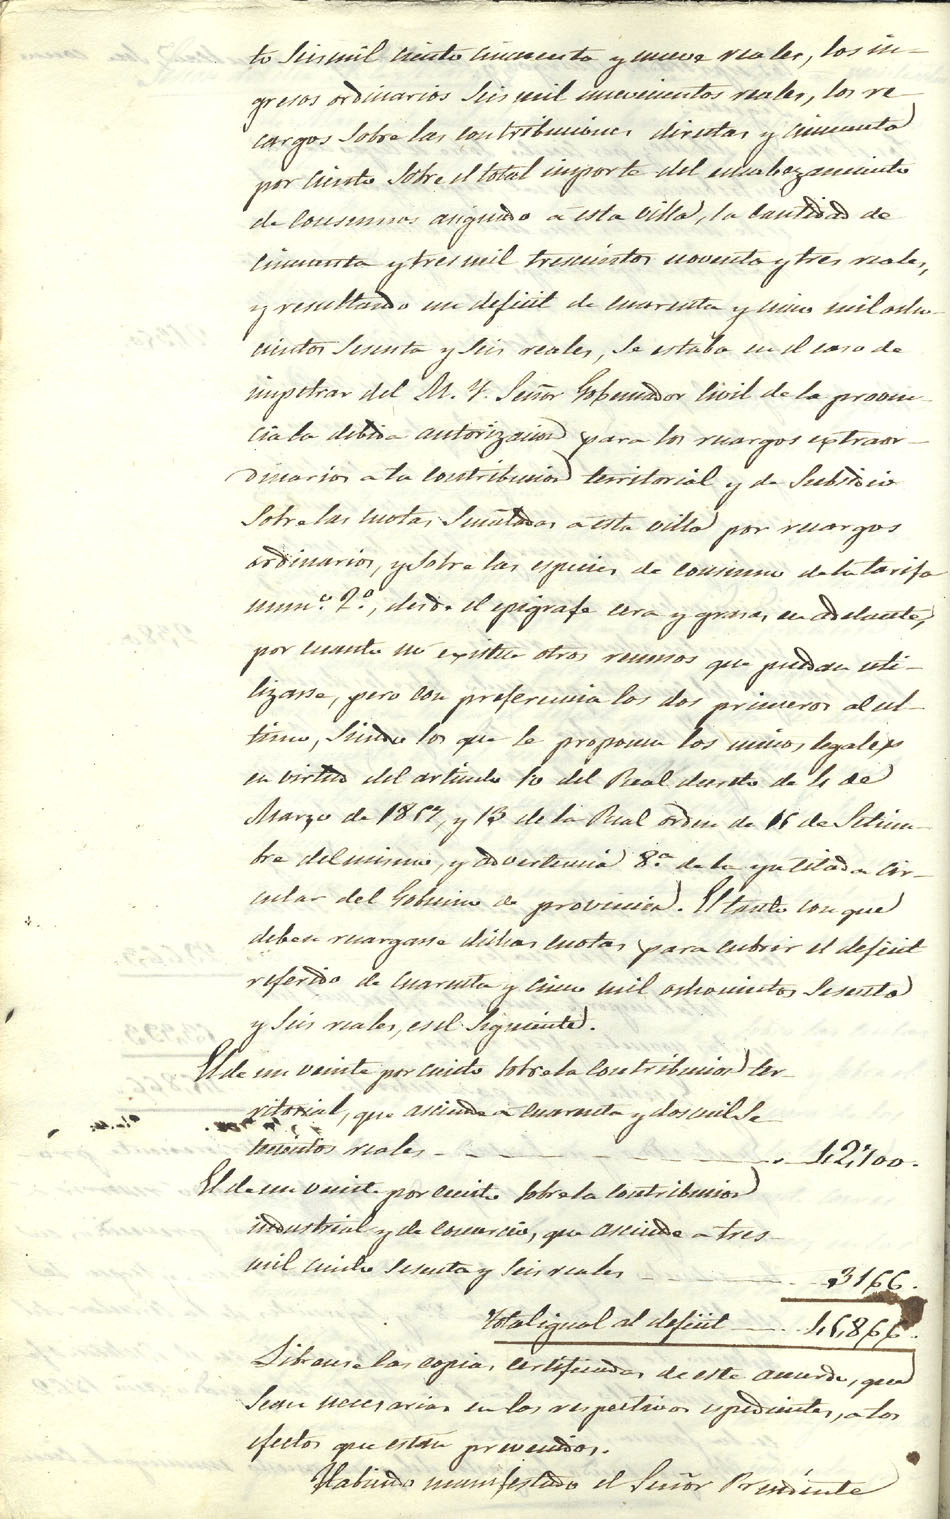 to seis mil ciento cincuenta y nueve reales, los in-
gresos ordinarios seis mil nuevecientos reales, los re-
cargos sobre las contribuciones directas y cincuenta
por ciento sobre el total importe del encabezamiento
de consumos asignado a esta villa, la cantidad de
cincuenta y tres mil trescientos noventa y tres reales,
y resultando un deficit de cuarenta y cinco mil ocho-
cientos sesenta y seis reales, se estaba en el caso de
impetrar del M. Y. Señor Gobernador Civil de la provin-
cia la debida autorizacion para los recargos extraor-
dinarios a la contribucion territorial y de subsidio
sobre las cuotas señaladas a esta villa por recargos
ordinarios, y sobre las especies de consumo de la tarifa
num.º 2.º, desde el epigrafe cera y grasas en adelante,
por cuanto no existen otros recursos que puedan uti-
lizarse, pero con preferencia los dos primeros al ul-
timo, siendo los que se proponen los unicos legales
en virtud del articulo 10 del Real decreto de 4 de
Marzo de 1857, y 13 de la Real orden de 15 de Setiem-
bre del mismo, y advertencia 8.ª de la ya citada cir-
cular del Gobierno de provincia. El tanto con que
deben recargarse dichas cuotas para cubrir el deficit
referido de cuarenta y cinco mil ochocientos sesenta
y seis reales, es el siguiente.
El de un veinte por ciento sobre la contribucion ter-
ritorial, que asciende a cuarenta y dos mil se-
tecientos reales 42,700.
El de un veinte por ciento sobre la contribucion
industrial y de comercio, que asciende a tres
mil ciento sesenta y seis reales 3166.
Total igual al deficit 45,866.
Librense las copias certificadas de este acuerdo, que
sean necesarias en los respectivos espedientes, a los
efectos que estan prevenidos.
Habiendo manifestado el Señor Presidente